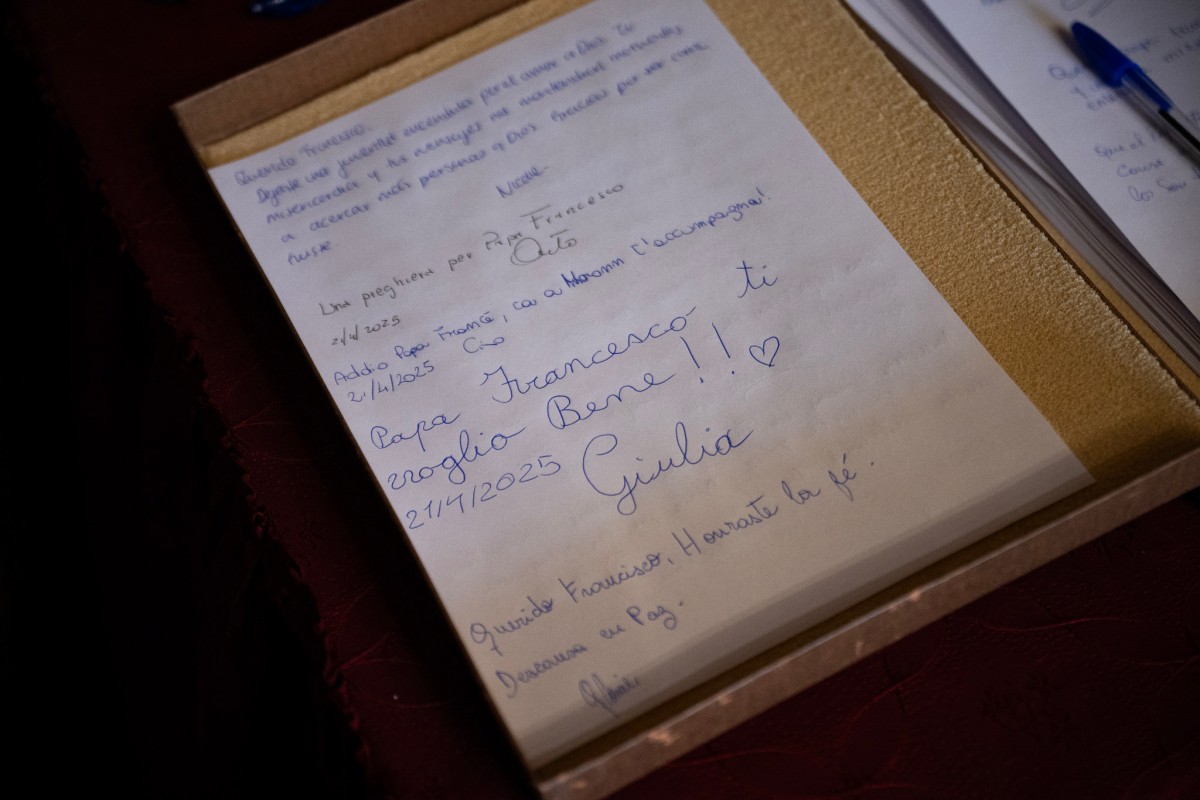 Querido Francisco.
Dejaste una juventud encendida por el amor a Dios. Tu
misericordia y tus mensajes nos mantendrán motivados
a acercar más personas a Dios. Gracias por ser como
fuiste.
Nicole.
Una preghiera per Papa Francesco
21/4/2025
Addio Papa Francé, ca a Maronn t'accumpagna!
21/4/2025 Ciro
Papa Francesco ti
voglio Bene!! ♡
21/4/2025 Giulia
Querido Francisco, Honraste la fé.
Descansa en Paz.